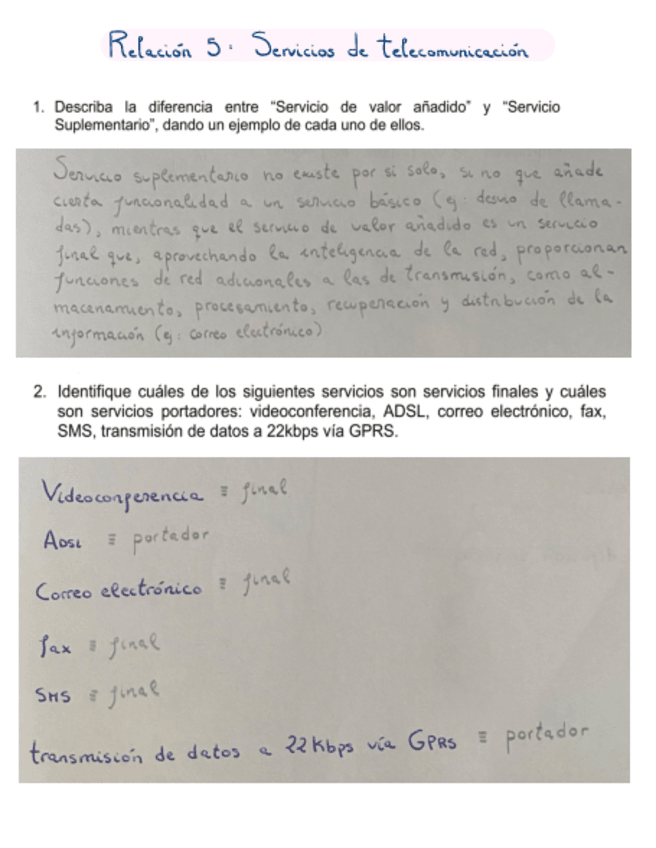 Relación 5: Servicios de telecomunicación
1. Describa la diferencia entre "Servicio de valor añadido" y "Servicio
Suplementario", dando un ejemplo de cada uno de ellos.
Servicio suplementario no existe por si solo, si no que añade
cierta funcionalidad a un servicio básico (ej: desvio de llama-
das), mientras que el servicio de valor añadido es un servicio
final que, aprovechando la inteligencia de la red, proporcionan
funciones de red adicionales a las de transmisión, como al-
macenamiento, procesamiento, recuperación y distribución de la
información (ej: correo electrónico)
2. Identifique cuáles de los siguientes servicios son servicios finales y cuáles
son servicios portadores: videoconferencia, ADSL, correo electrónico, fax,
SMS, transmisión de datos a 22kbps vía GPRS.
Videoconferencia ≡ final
ADSL ≡ portador
Correo electrónico ≡ final
fax ≡ final
SMS ≡ final
transmisión de datos a 22kbps vía GPRS ≡ portador